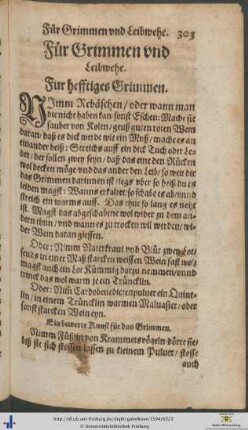 Für Grimmen vnd Leibwehe. 303
Für Grimmen vnd
Leibwehe.
Fur hefftiges Grimmen.
NImm Rebäschen / oder wann man
die nicht haben kan / sonst Eschen: Mache sie
sauber von Kolen / geuß guten roten Wein
daran / daß es dick werde wie ein Muß / mach es an
einander heiß: Streichs auff ein dick Tuch oder Le-
der / der sollen zwey seyn / daß das eine den Rücken
wol decken möge vnd das ander den Leib / so weit dir
das Grimmen darinnen ist / legs vber so heiß du es
leiden magst: Wanns erkaltet / so schabs ab vnnd
streich ein warms auff. Das thue so lang es noht
ist. Magst das abgeschabene wol wider zu dem an-
dern thun / vnd wann es zu trocken wil werden / wi-
der Wein daran giessen.
Oder: Nimm Naterkraut vnd Blüt zwey Lot /
seuds in einer Maß starcken weissen Wein fast wol /
magst auch ein Lot Kümmig darzu nemmen / vnnd
trinck das wol warm je ein Trüncklin.
Oder: Nim Cardobenedictenpulver ein Quint-
lin / in einem Trüncklin warmen Maluasier / oder
sonst starcken Wein eyn.
Ein bewerte Kunst für das Grimmen.
Nimm Füßlin von Krammetsvögeln dörre sie /
biß sie sich stossen lassen zu kleinem Pulver / stosse
auch
© Universitätsbibliothek Freiburg